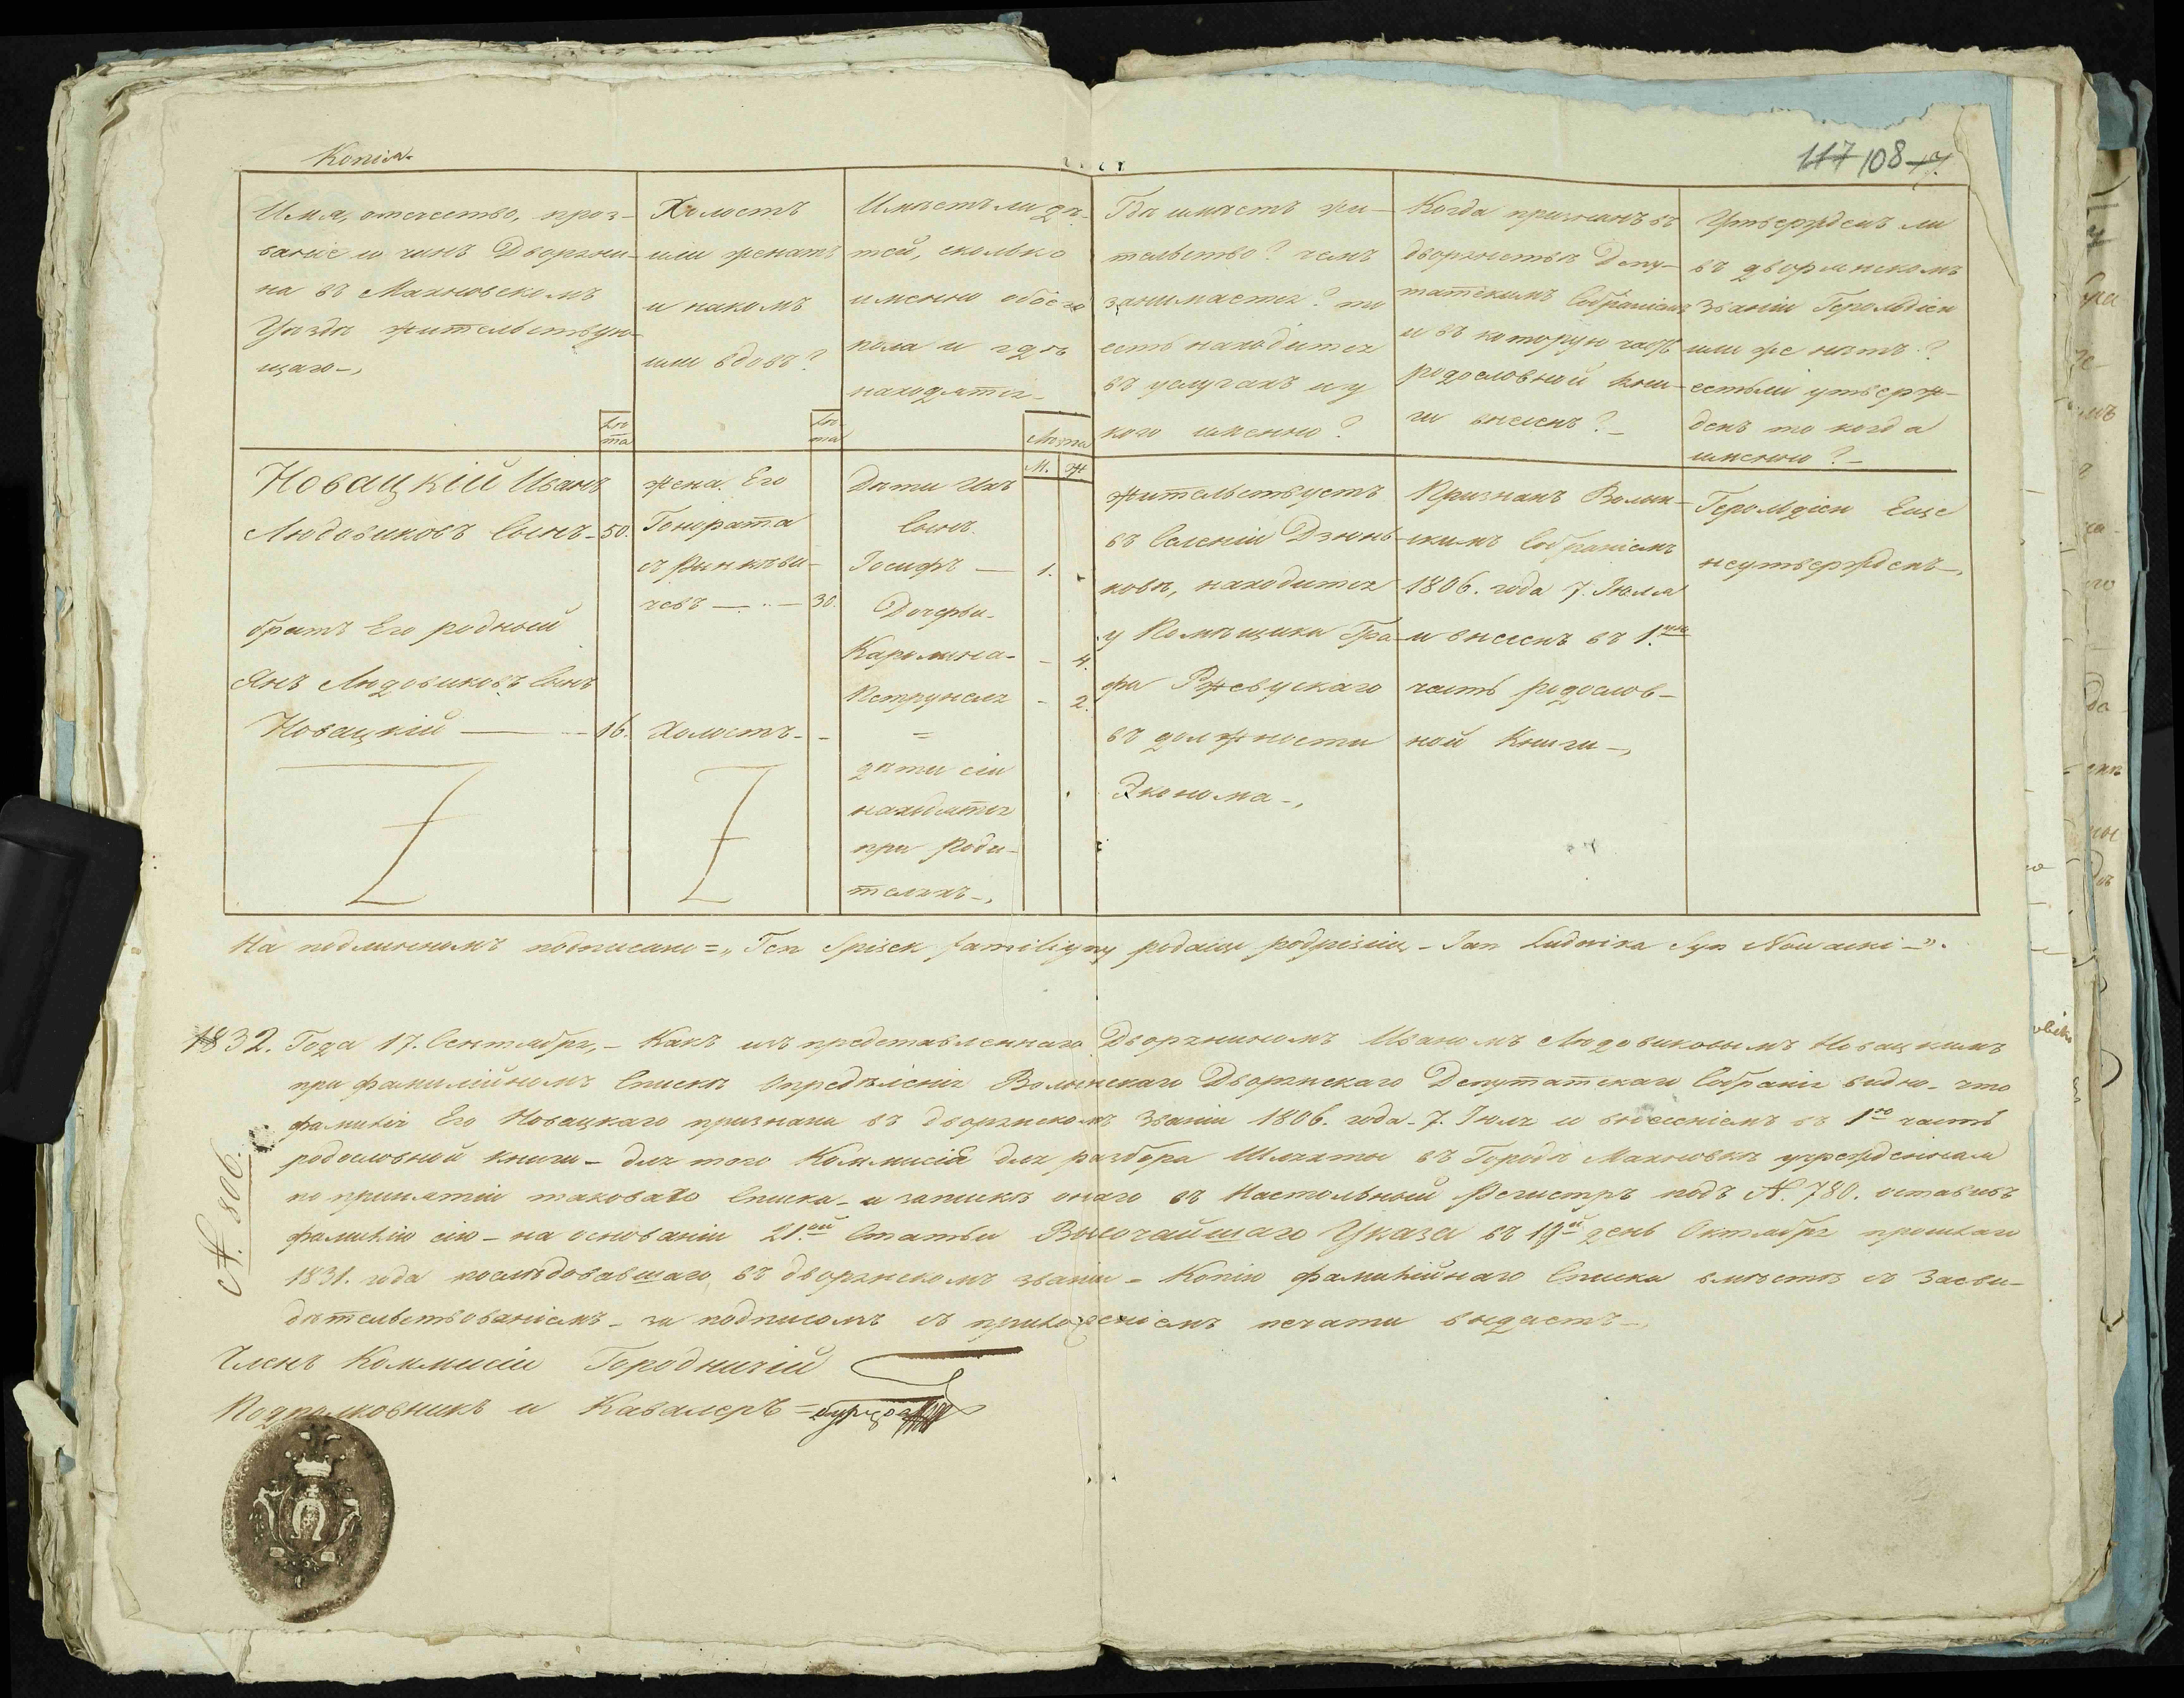 Копія.
117 108
Имя, отечество, проз-
ваніе и чинъ Дворяни-
на въ Махновскомъ
Уѣздѣ жительствую-
щаго-,
Лѣ
та
Холостъ
или женатъ
и накомъ
или вдовъ?
Лѣ
та
Имѣетъ ли дѣ-
тей, сколько
именно обоего
пола и гдѣ
находятся-
Лѣта
М. Ж
Гдѣ имѣетъ жи-
тельство? чемъ
занимается? то
есть находится
въ услугахъ и у
кого именно?
Когда признанъ въ
дворянствѣ Депу-
татскимъ Собраніемъ
и въ которую часть
родословной кни-
ги внесенъ?-
Утвержденъ ли
въ дворянскомъ
Званіи Герольдіею
или же нѣтъ?
естьли утверж-
денъ то когда
именно?-
Новацкій Иванъ
Людовиковъ Сынъ- 50.
братъ Его родный
Янъ Людовиковъ Сынъ
Новацкій — 16.
жена Его
Гонората
съ Ринкѣви-
чевъ — 30.
Холостъ-
Дѣти Ихъ
Сынъ
Іосифъ — 1.
Дочери-
Каролина- - 4.
Петрунеля - 2.
=
дѣти сіи
находятся
при Роди-
теляхъ-,
жительствуетъ
въ Селеніи Дзюнь-
ковѣ, находится
у Помѣщика Гра-
фа Ржевускаго
въ должности
Эконома-,
Признанъ Волын-
скимъ Собраніемъ
1806. года 7. Іюля
и внесенъ въ 1.ую
часть родослов-
ной Книги-,
Герольдіею Еще
неутвержденъ-,
На подлинномъ подписано=„ Ten Spisek familiyny podaiąc podpisuię - Jan Ludwika Syn Nowacki -".
1832. Года 17. Сентября,- Какъ изъ представленнаго Дворяниномъ Иваномъ Людовиковымъ Новацкимъ
при фамилійномъ Спискѣ Опредѣленія Волынскаго Дворянскаго Депутатскаго Собранія видно- что
фамилія Его Новацкаго признана въ дворянскомъ Званіи 1806. года- 7. Іюля и внесеніемъ въ 1ю часть
родословной книги- для того Коммисія для разбора Шляхты въ Городѣ Махновкѣ учрежденная
по принятіи таковаго Списка- и запискѣ онаго въ Настольный Регистръ подъ N. 780. оставивъ
фамилію сію- на основаніи 21.ой Статьи Высочайшаго Указа въ 19й день Октября прошлаго
1831. года послѣдовавшаго, въ дворянскомъ званіи- Копію фамилійнаго Списка вмѣстѣ съ Засви-
дѣтельствованіемъ- за подписомъ съ приложеніемъ печати выдаетъ-,
N. 806.
Членъ Коммисіи Городничій
Подполковникъ и Кавалеръ=